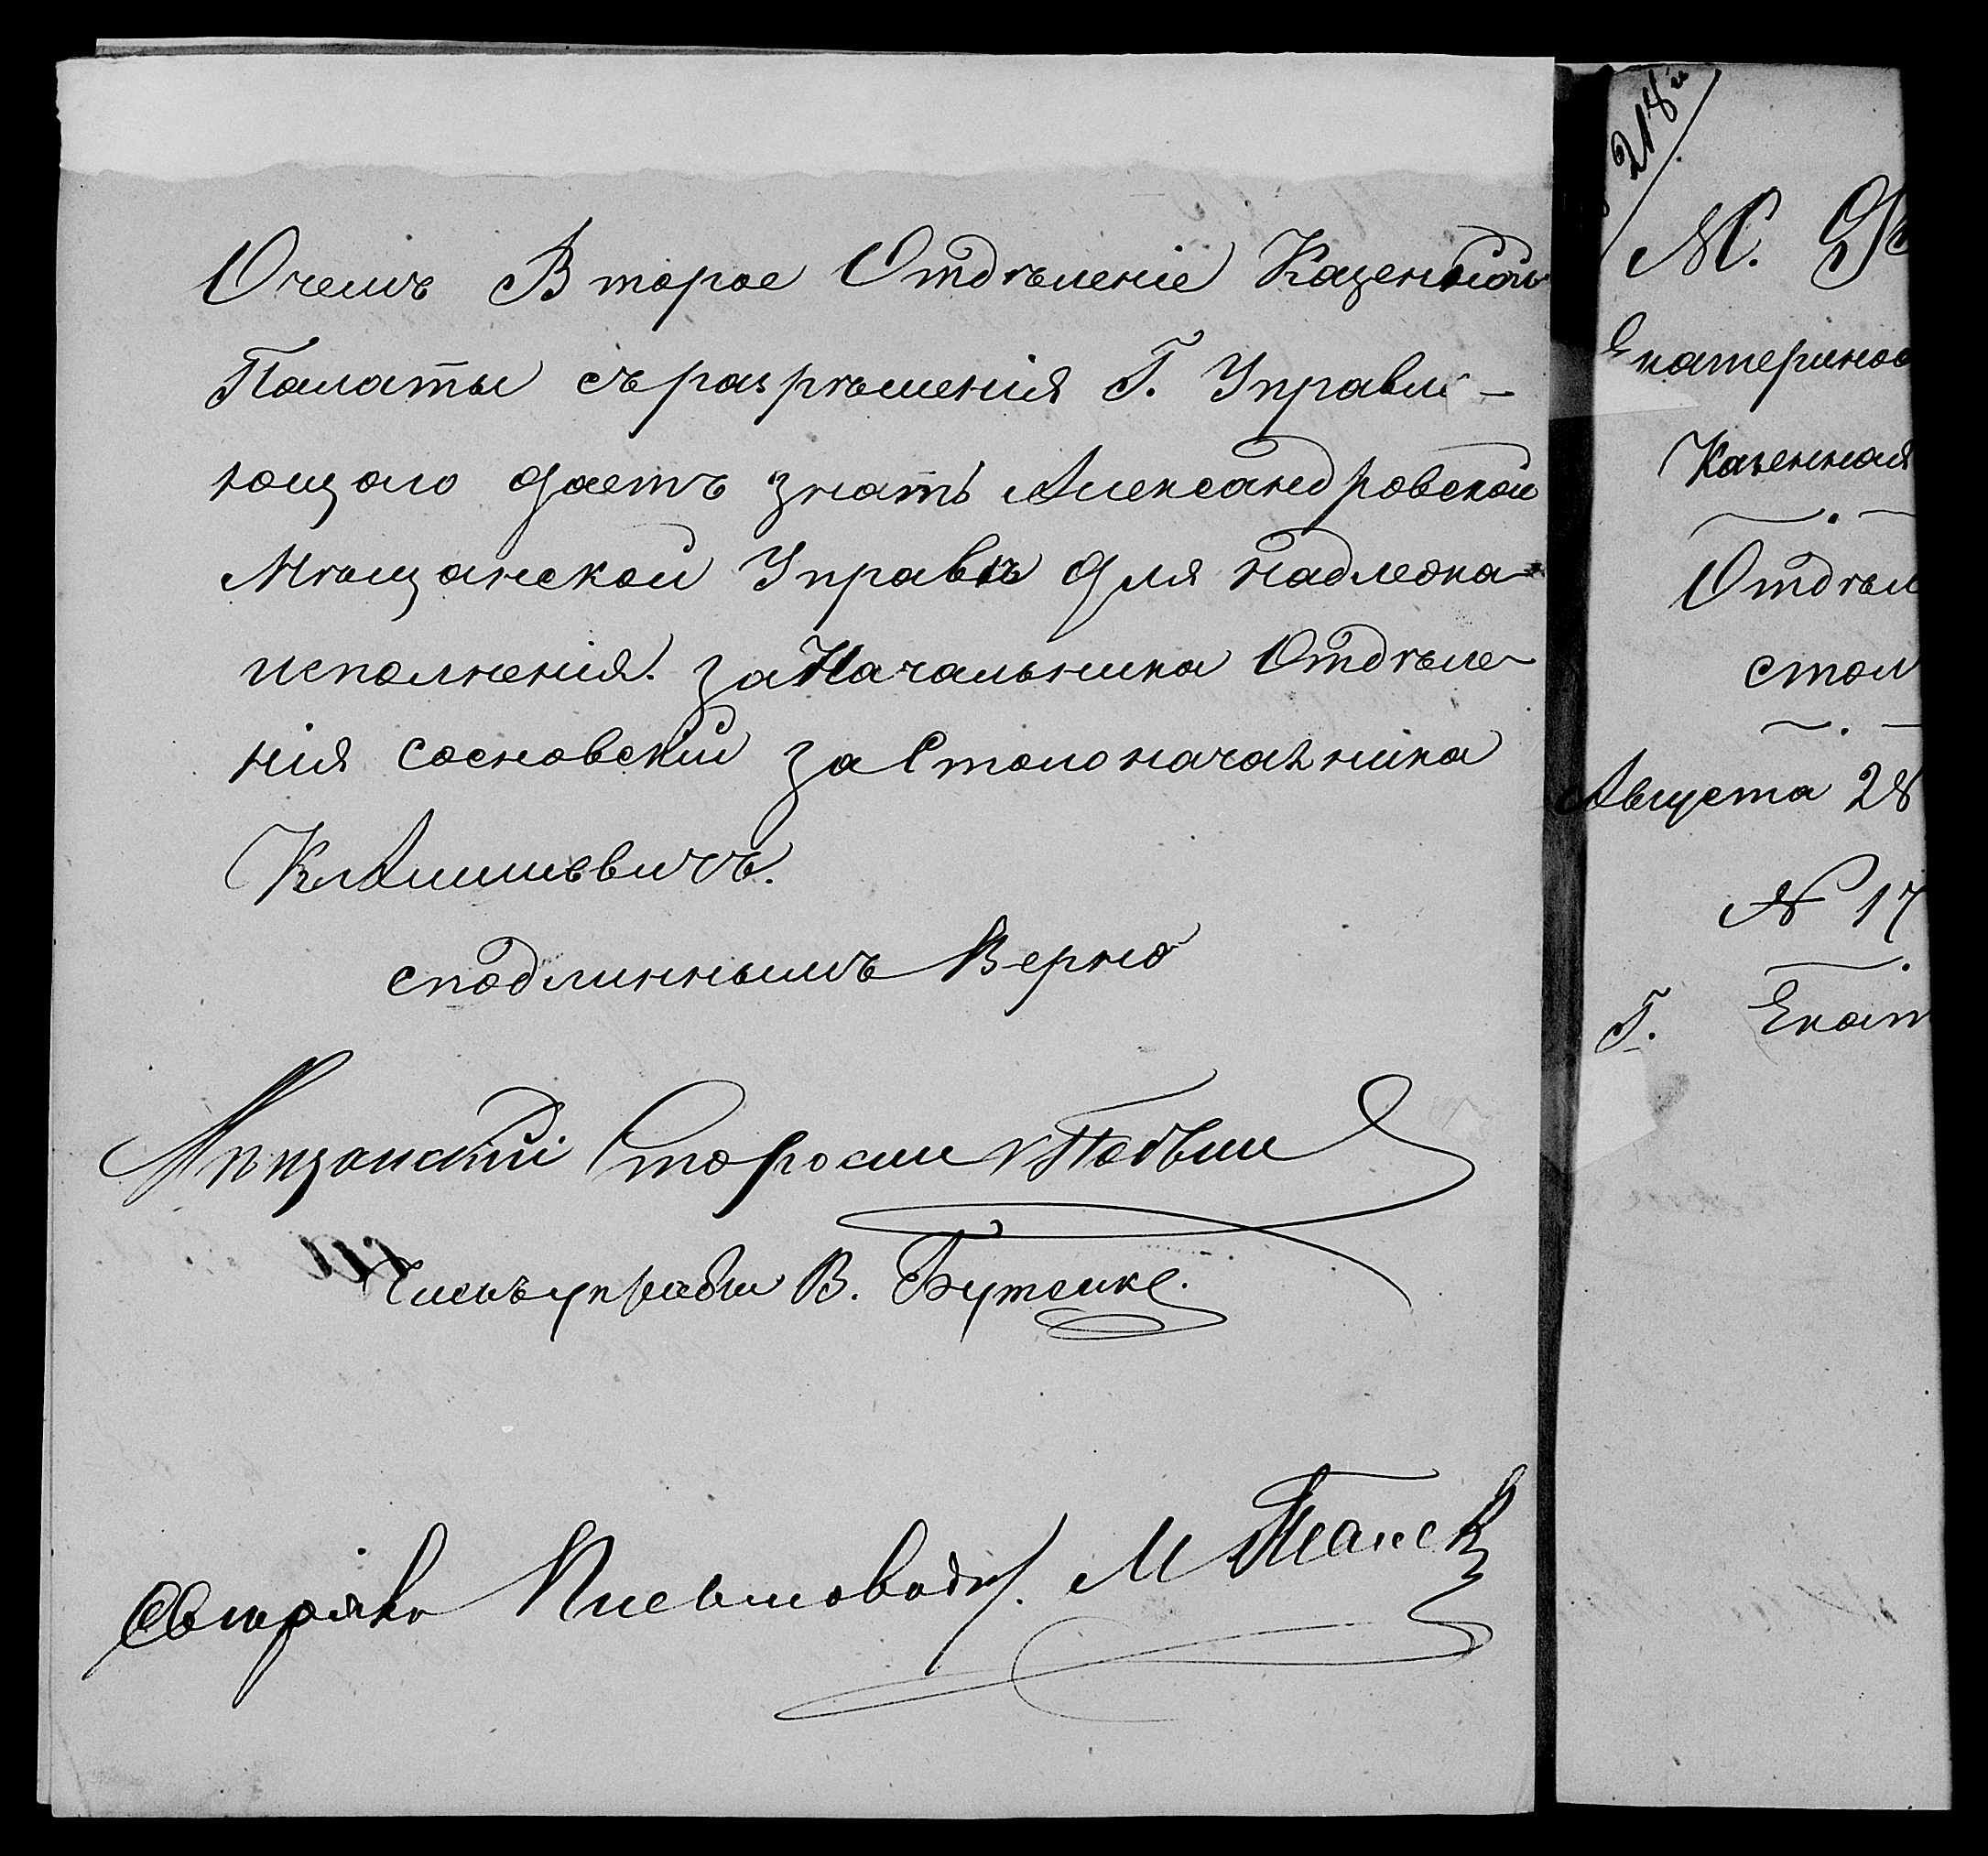 Очемъ Второе Отдѣленіе Казенной
Палаты съ разрѣшенія Г. Управля-
ющаго даетъ знать Александровской
Мѣщанской Управѣ для надлежа-
исполненія. за Начальника Отдѣле-
нія Сосновскій за Столоначальника
Климшевичъ.
сподлиннымъ Верно
Мѣщанскій Староста
Членъ управы В. Бутенко.
Свѣрялъ Письмовод.
218
М. Ф
Екатеринос
Казенная
Отдѣл
стол
Августа 28
№ 17
Г. Екат